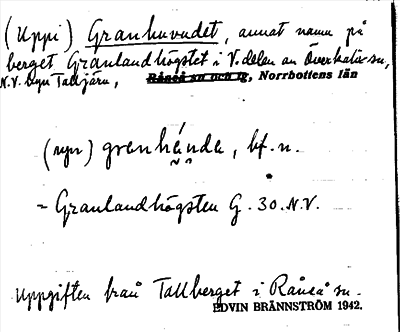 (Uppi) Granhuvudet, annat namn på
berget Granlandhögstet i V. delen av Överkalix sn,
N.V. byn Talljärn, Råneå sn och tg, Norrbottens län
(uyn) granhända, bf. n.
= Granlandhögsten G. 30. N.V.
Uppgiften från Tallberget i Råneå sn.
EDVIN BRÄNNSTRÖM 1942.